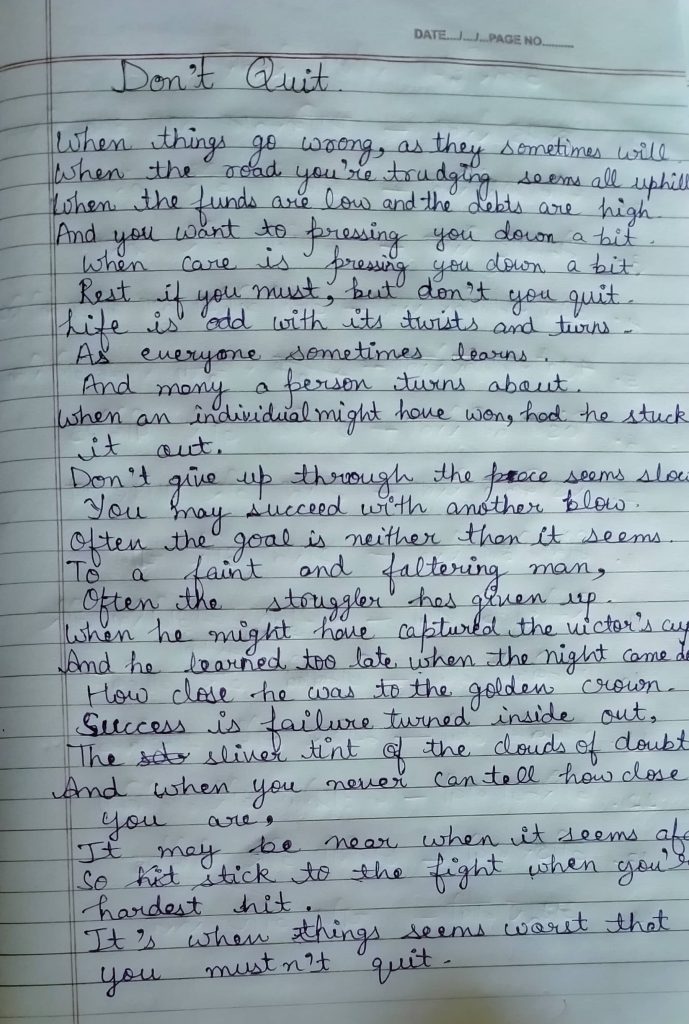 DATE..../..../....PAGE NO..........
Don't Quit.
When things go wrong, as they sometimes will
When the road you're trudging seems all uphill
When the funds are low and the debts are high
And you want to pressing you down a bit.
When care is pressing you down a bit.
Rest if you must, but don't you quit.
Life is odd with its twists and turns.
As everyone sometimes learns.
And many a person turns about.
When an individual might have won, had he stuck
it out.
Don't give up through the pace seems slow
You may succeed with another blow.
Often the goal is neither than it seems.
To a faint and faltering man,
Often the struggler has given up.
When he might have captured the victor's cup
And he learned too late when the night came
How close he was to the golden crown.
Success is failure turned inside out,
The sliver tint of the clouds of doubt
And when you never can tell how close
you are,
It may be near when it seems
So stick to the fight when
hardest hit.
It's when things seems worst that
you mustn't quit.